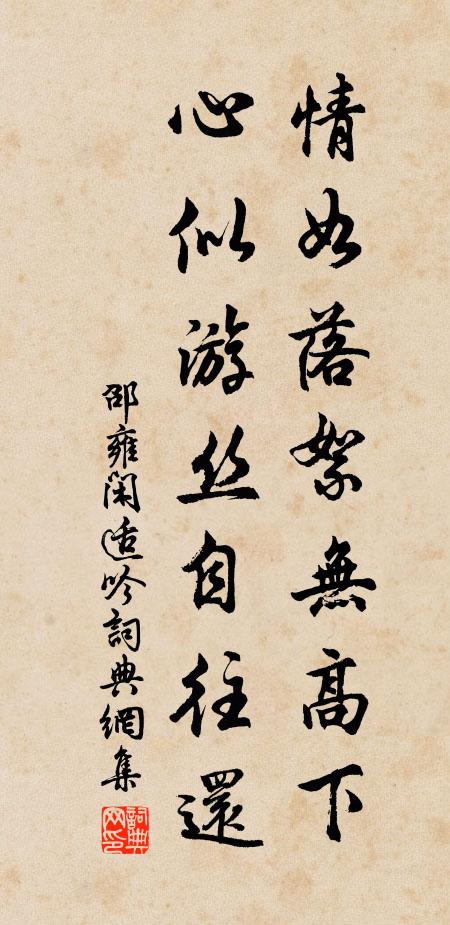 情如落絮無高下
心似游丝自往還
邵雍闲适吟詞典網集
詞典网印